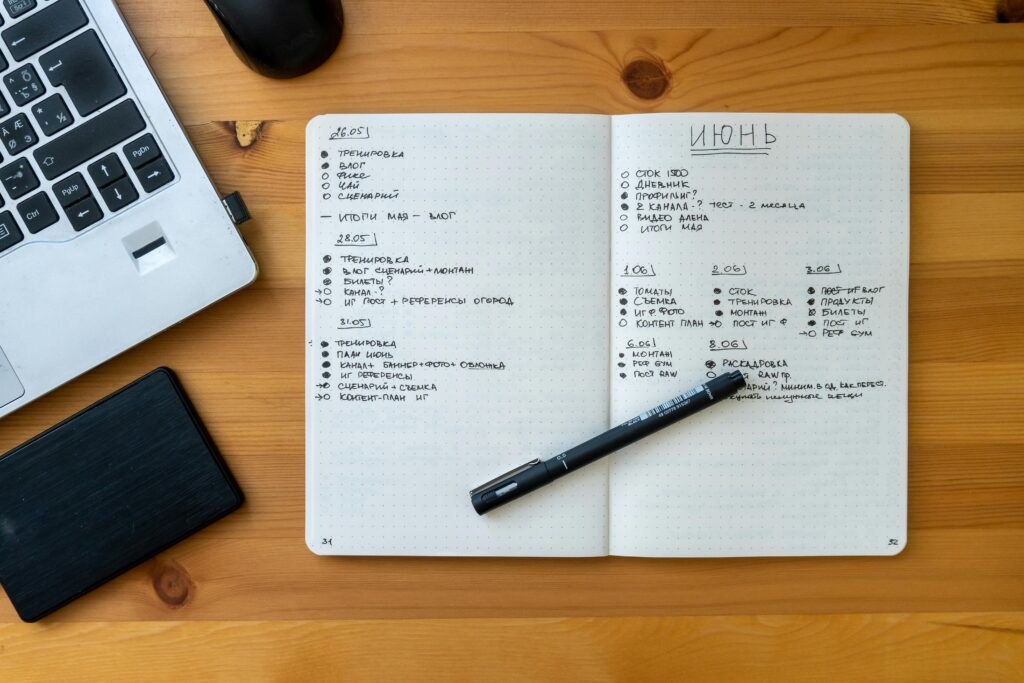 26.05
ТРЕНИРОВКА
ВЛОГ
ФИКС
ЧАЙ
СЦЕНАРИЙ
— ИТОГИ МАЯ — ВЛОГ
28.05
ТРЕНИРОВКА
ВЛОГ СЦЕНАРИЙ + МОНТАЖ
БИЛЕТЫ?
КАНАЛ-?
ИГ ПОСТ + РЕФЕРЕНСЫ ОГОРОД
31.05
ТРЕНИРОВКА
ПЛАН ИЮНЬ
КАНАЛ + БАННЕР + ФОТО + ОБЛОЖКА
ИГ РЕФЕРЕНСЫ
СЦЕНАРИЙ + СЪЕМКА
КОНТЕНТ-ПЛАН ИГ
31
ИЮНЬ
СТОК 1500
ДНЕВНИК
ПРОФИЛЬИГ?
2 КАНАЛА-? ТЕСТ - 2 МЕСЯЦА
ВИДЕО АЛЕНА
ИТОГИ МАЯ
1.06
ТОМАТЫ
СЪЕМКА
ИГ Ф. ФОТО
КОНТЕНТ ПЛАН
2.06
СТОК
ТРЕНИРОВКА
МОНТАЖ
ПОСТ ИГ Ф
3.06
ПОСТ ИГ ВЛОГ
ПРОДУКТЫ
БИЛЕТЫ
ПОСТ ИГ
РЕФ SYM
6.06
МОНТАЖ
РЕФ SYM
ПОСТ RAW
8.06
РАСКАДРОВКА
RAW ПР.
МИНИМ. В ОД. КАК ПЕРЕСТ.
НЕНУЖНЫЕ ВЕЩИ
32
0.5
PgUp
PgDn
Ctrl